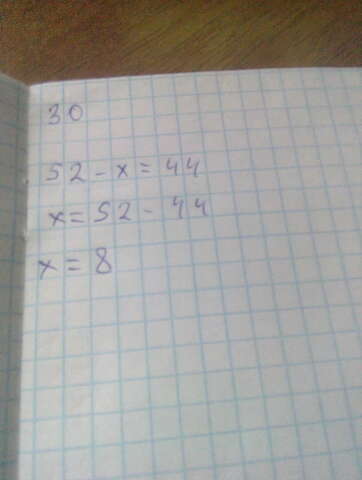 30
52 - x = 44
x = 52 - 44
x = 8